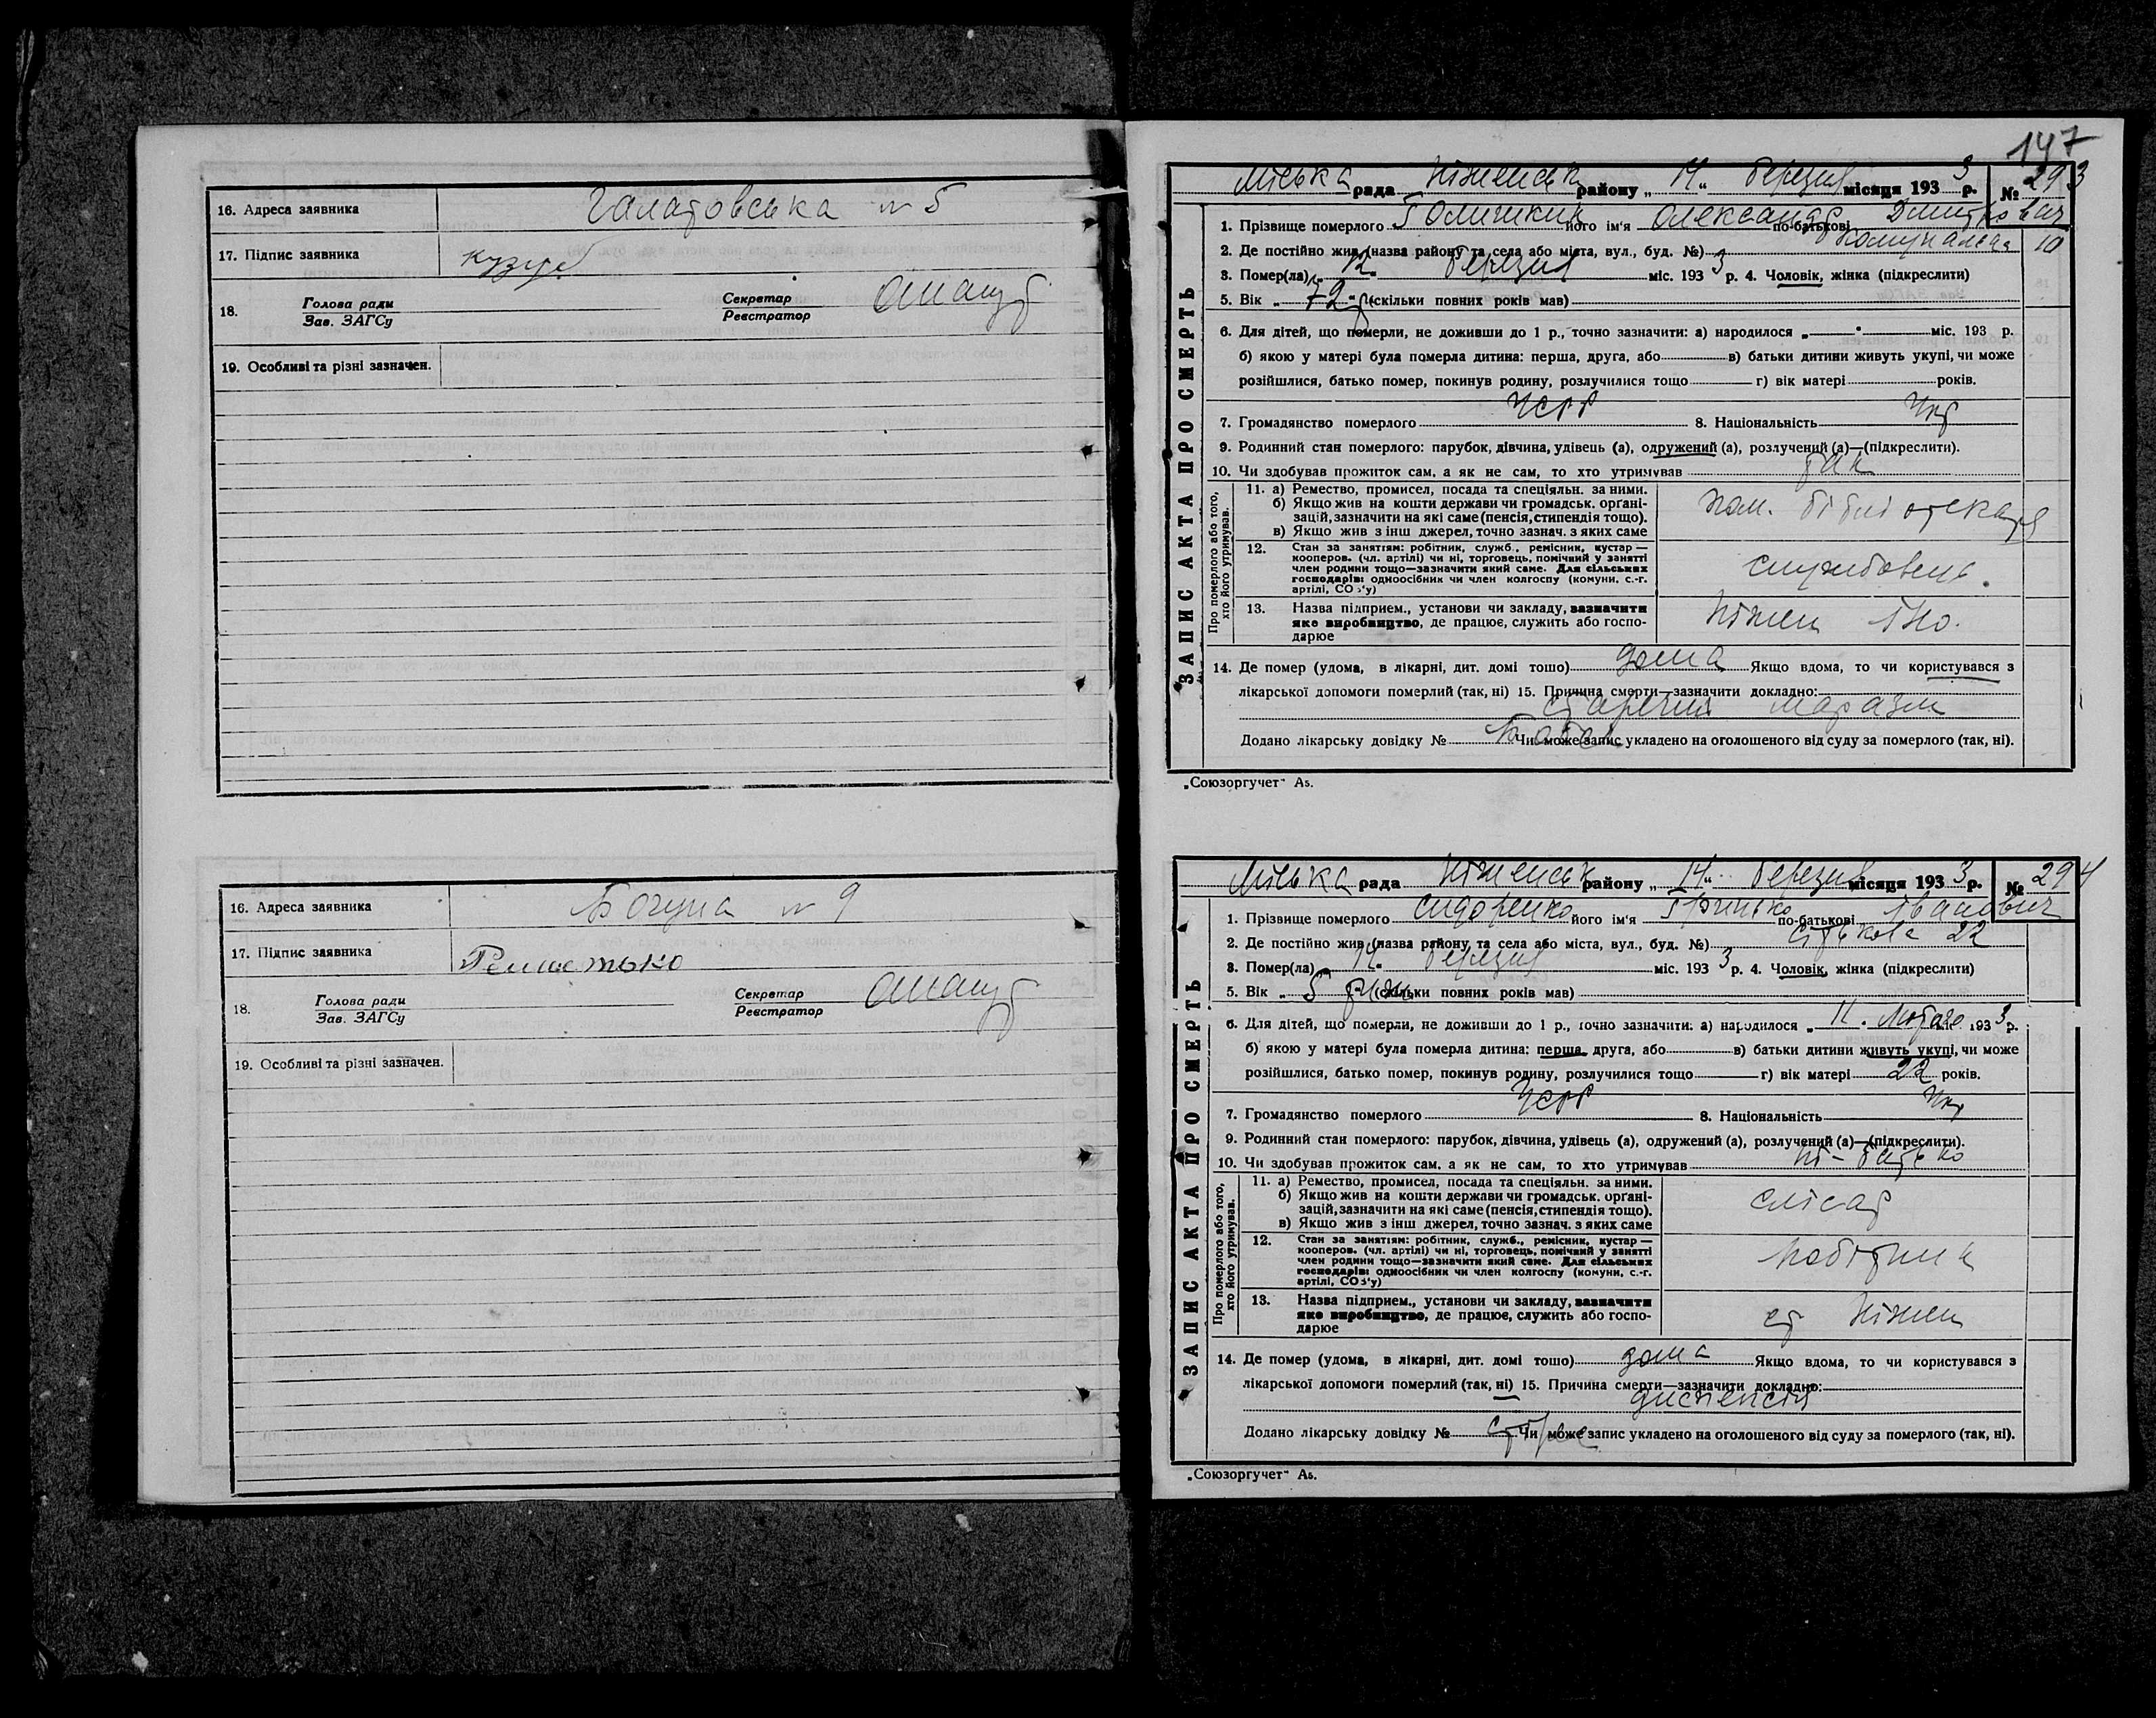 16. Адреса заявника Галатовська № 5
17. Підпис заявника
18. Голова ради
Зав. ЗАГСу
Секретар
Реєстратор
19. Особливі та різні зазначен.
16. Адреса заявника Богуна № 9
17. Підпис заявника
18. Голова ради
Зав. ЗАГСу
Секретар
Реєстратор
19. Особливі та різні зазначен.
147
ЗАПИС АКТА ПРО СМЕРТЬ
Міська рада Ніженськ району „14“ березня місяця 1933 р. № 293
1. Прізвище померлого його ім'я Олександр по-батькові Дмитрович
2. Де постійно жив (назва району та села або міста, вул., буд. №) Комунальна 10
3. Помер(ла) „12“ березня міс. 1933 р. 4. Чоловік, жінка (підкреслити)
5. Вік „72“ р. (скільки повних років мав)
6. Для дітей, що померли, не доживши до 1 р., точно зазначити: а) народилося „ “ міс. 193 р.
б) якою у матері була померла дитина: перша, друга, або в) батьки дитини живуть укупі, чи може
розійшлися, батько помер, покинув родину, розлучилися тощо г) вік матері років.
7. Громадянство померлого УСРР 8. Національність Укр
9. Родинний стан померлого: парубок, дівчина, удівець (а), одружений (а), розлучений (а)—(підкреслити).
10. Чи здобував прожиток сам, а як не сам, то хто утримував так
Про померлого або того,
хто його утримував.
11. а) Ремество, промисел, посада та спеціяльн. за ними.
б) Якщо жив на кошти держави чи громадськ. органі-
зацій, зазначити на які саме (пенсія, стипендія тощо).
в) Якщо жив з інш джерел, точно зазнач. з яких саме
Пом. бібліотекаря
12. Стан за занятіям: робітник, служб., ремісник, кустар —
кооперов. (чл. артілі) чи ні, торговець, помічний у занятті
член родини тощо—зазначити який саме. Для сільських
господарів: одноосібник чи член колгоспу (комуни, с.-г.
артілі, СОЗ'у)
службовець.
13. Назва підприєм., установи чи закладу, зазначити
яке виробництво, де працює, служить або госпо-
дарює
Ніжен ІНО.
14. Де помер (удома, в лікарні, дит. домі тощо) дома Якщо вдома, то чи користувався з
лікарської допомоги померлий (так, ні) 15. Причина смерти—зазначити докладно:
старечий маразм
Додано лікарську довідку № Чи може запис укладено на оголошеного від суду за померлого (так, ні).
„Союзоргучет“ А5.
ЗАПИС АКТА ПРО СМЕРТЬ
Міська рада Ніженськ району „14“ березня місяця 1933 р. № 294
1. Прізвище померлого Сидоренко його ім'я Грицько по-батькові Іванович
2. Де постійно жив (назва району та села або міста, вул., буд. №) 22
3. Помер(ла) „14“ березня міс. 1933 р. 4. Чоловік, жінка (підкреслити)
5. Вік „5 (скільки повних років мав)
6. Для дітей, що померли, не доживши до 1 р., точно зазначити: а) народилося „11. Лютого 1933 р.
б) якою у матері була померла дитина: перша, друга, або в) батьки дитини живуть укупі, чи може
розійшлися, батько помер, покинув родину, розлучилися тощо г) вік матері 22 років.
7. Громадянство померлого УСРР 8. Національність Укр
9. Родинний стан померлого: парубок, дівчина, удівець (а), одружений (а), розлучений (а)—(підкреслити).
10. Чи здобував прожиток сам, а як не сам, то хто утримував ні - батько
Про померлого або того,
хто його утримував.
11. а) Ремество, промисел, посада та спеціяльн. за ними.
б) Якщо жив на кошти держави чи громадськ. органі-
зацій, зазначити на які саме (пенсія, стипендія тощо).
в) Якщо жив з інш джерел, точно зазнач. з яких саме
слісар
12. Стан за занятіям: робітник, служб., ремісник, кустар —
кооперов. (чл. артілі) чи ні, торговець, помічний у занятті
член родини тощо—зазначити який саме. Для сільських
господарів: одноосібник чи член колгоспу (комуни, с.-г.
артілі, СОЗ'у)
робітник
13. Назва підприєм., установи чи закладу, зазначити
яке виробництво, де працює, служить або госпо-
дарює
ст Ніжен
14. Де помер (удома, в лікарні, дит. домі тощо) дома Якщо вдома, то чи користувався з
лікарської допомоги померлий (так, ні) 15. Причина смерти—зазначити докладно:
диспепсія
Додано лікарську довідку № Чи може запис укладено на оголошеного від суду за померлого (так, ні).
„Союзоргучет“ А5.